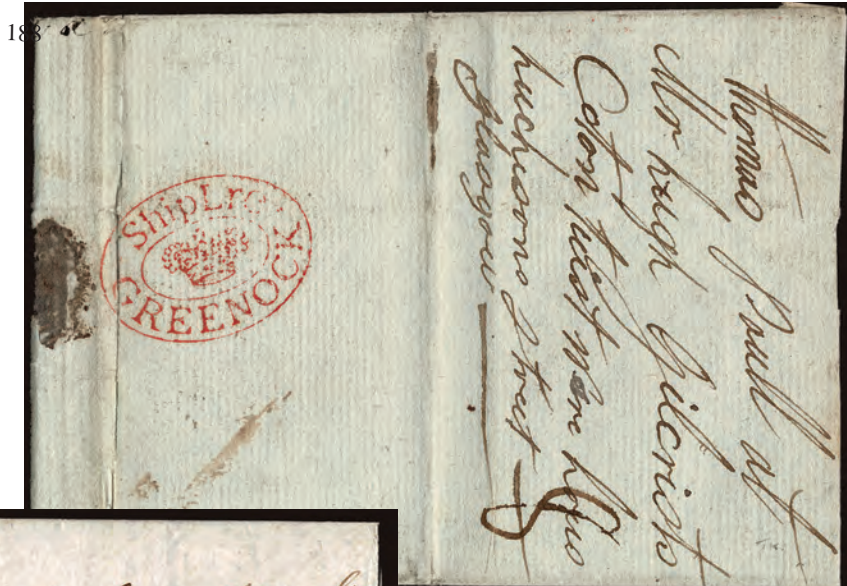 188
Ship Lre
GREENOCK
Thomas Paull at
Mr hugh Gilcrists
Coton twist Ware hows
huchesons Street
Glasgow
8